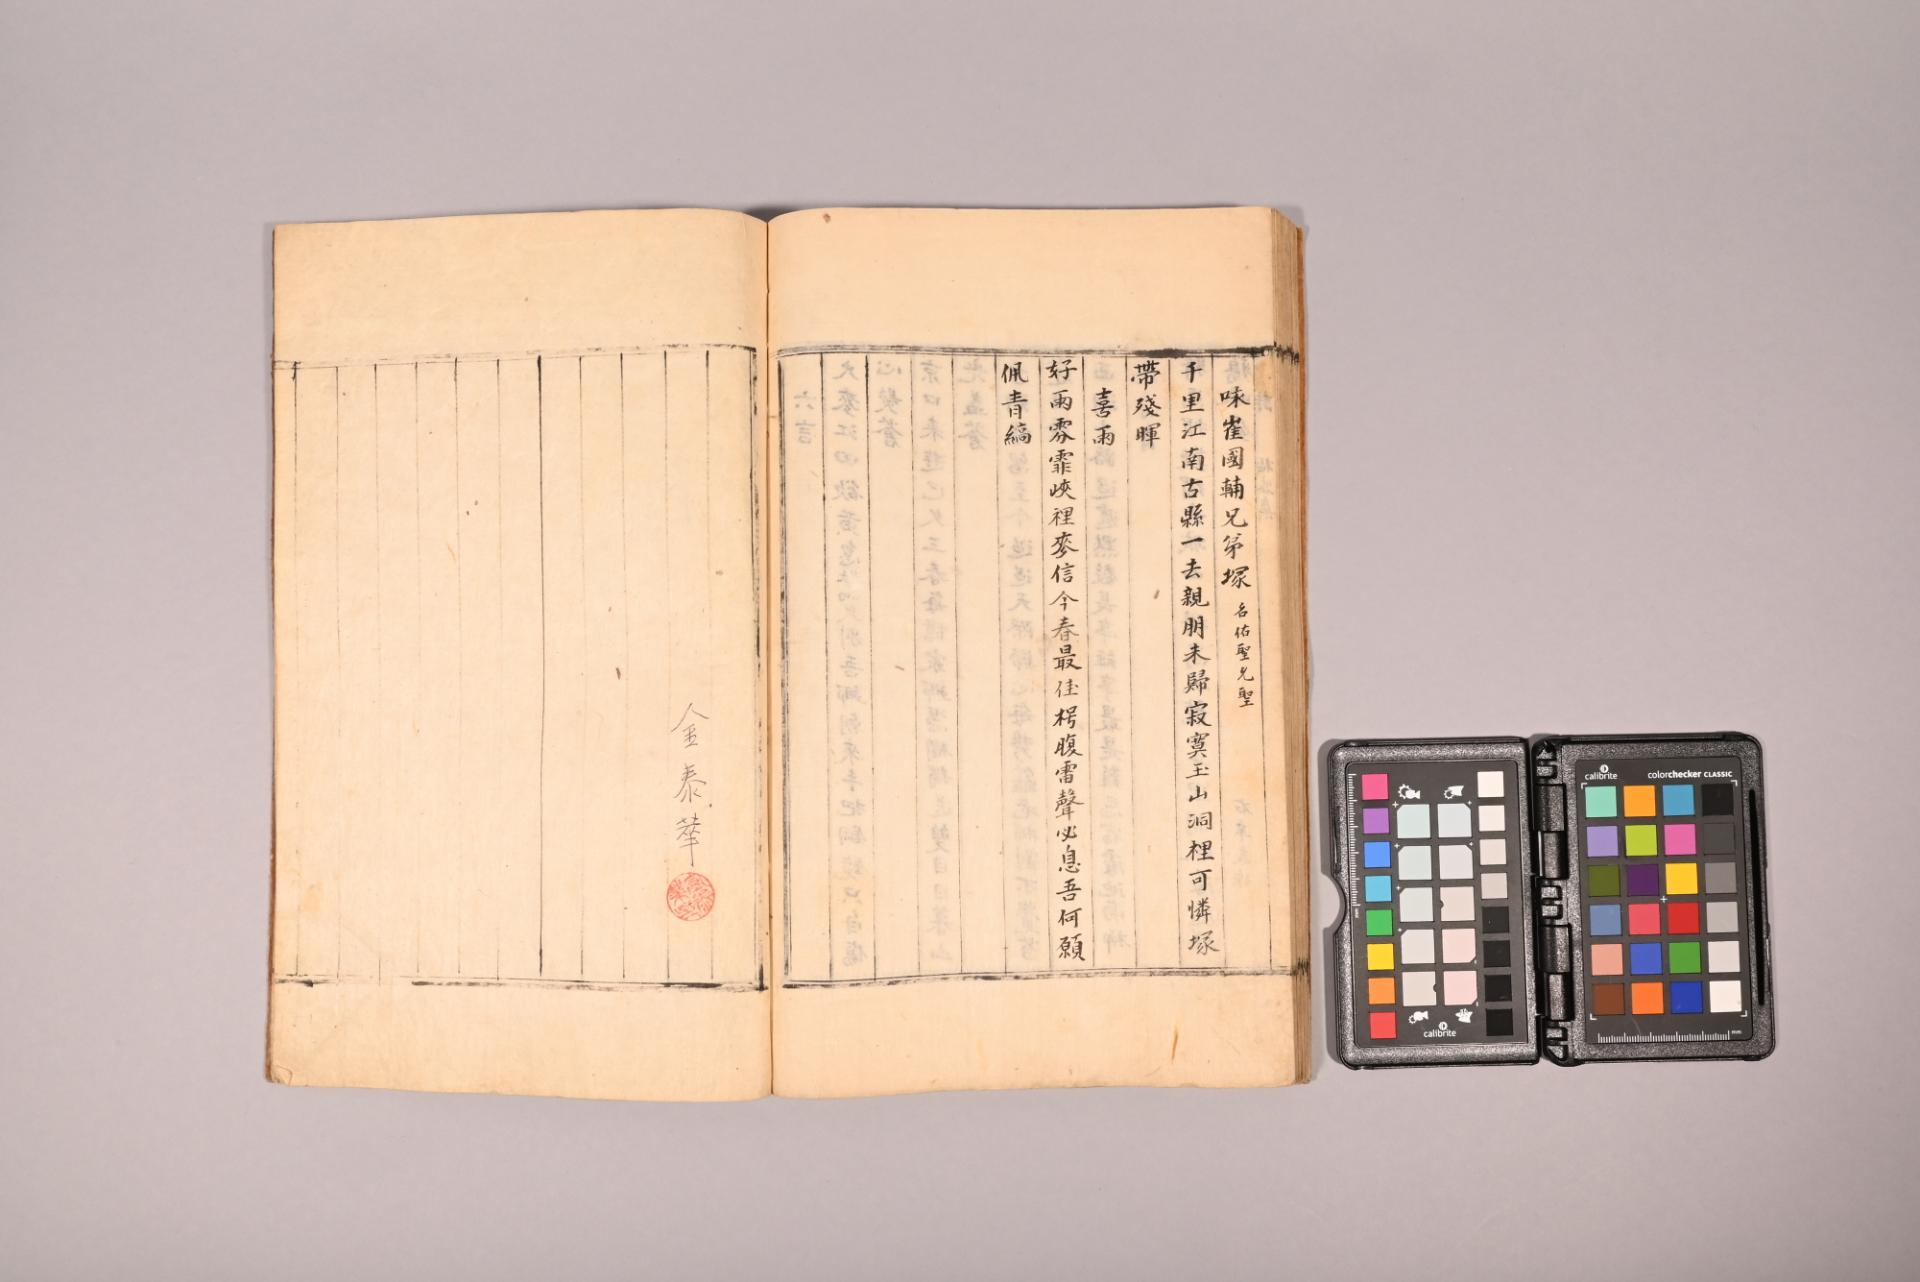 咏崔國輔兄弟塚 名佑聖允聖
千里江南古縣一去親朋未歸寂寞玉山洞裡可憐塚
帶殘暉
喜雨
好雨雰霏峽裡麥信今春最佳枵腹雷聲必息吾何願
佩青緺
金泰華
calibrite
calibrite
colorchecker CLASSIC
mm